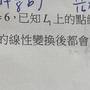 =6,已知 L₁ 上的點
的線性變換後都會